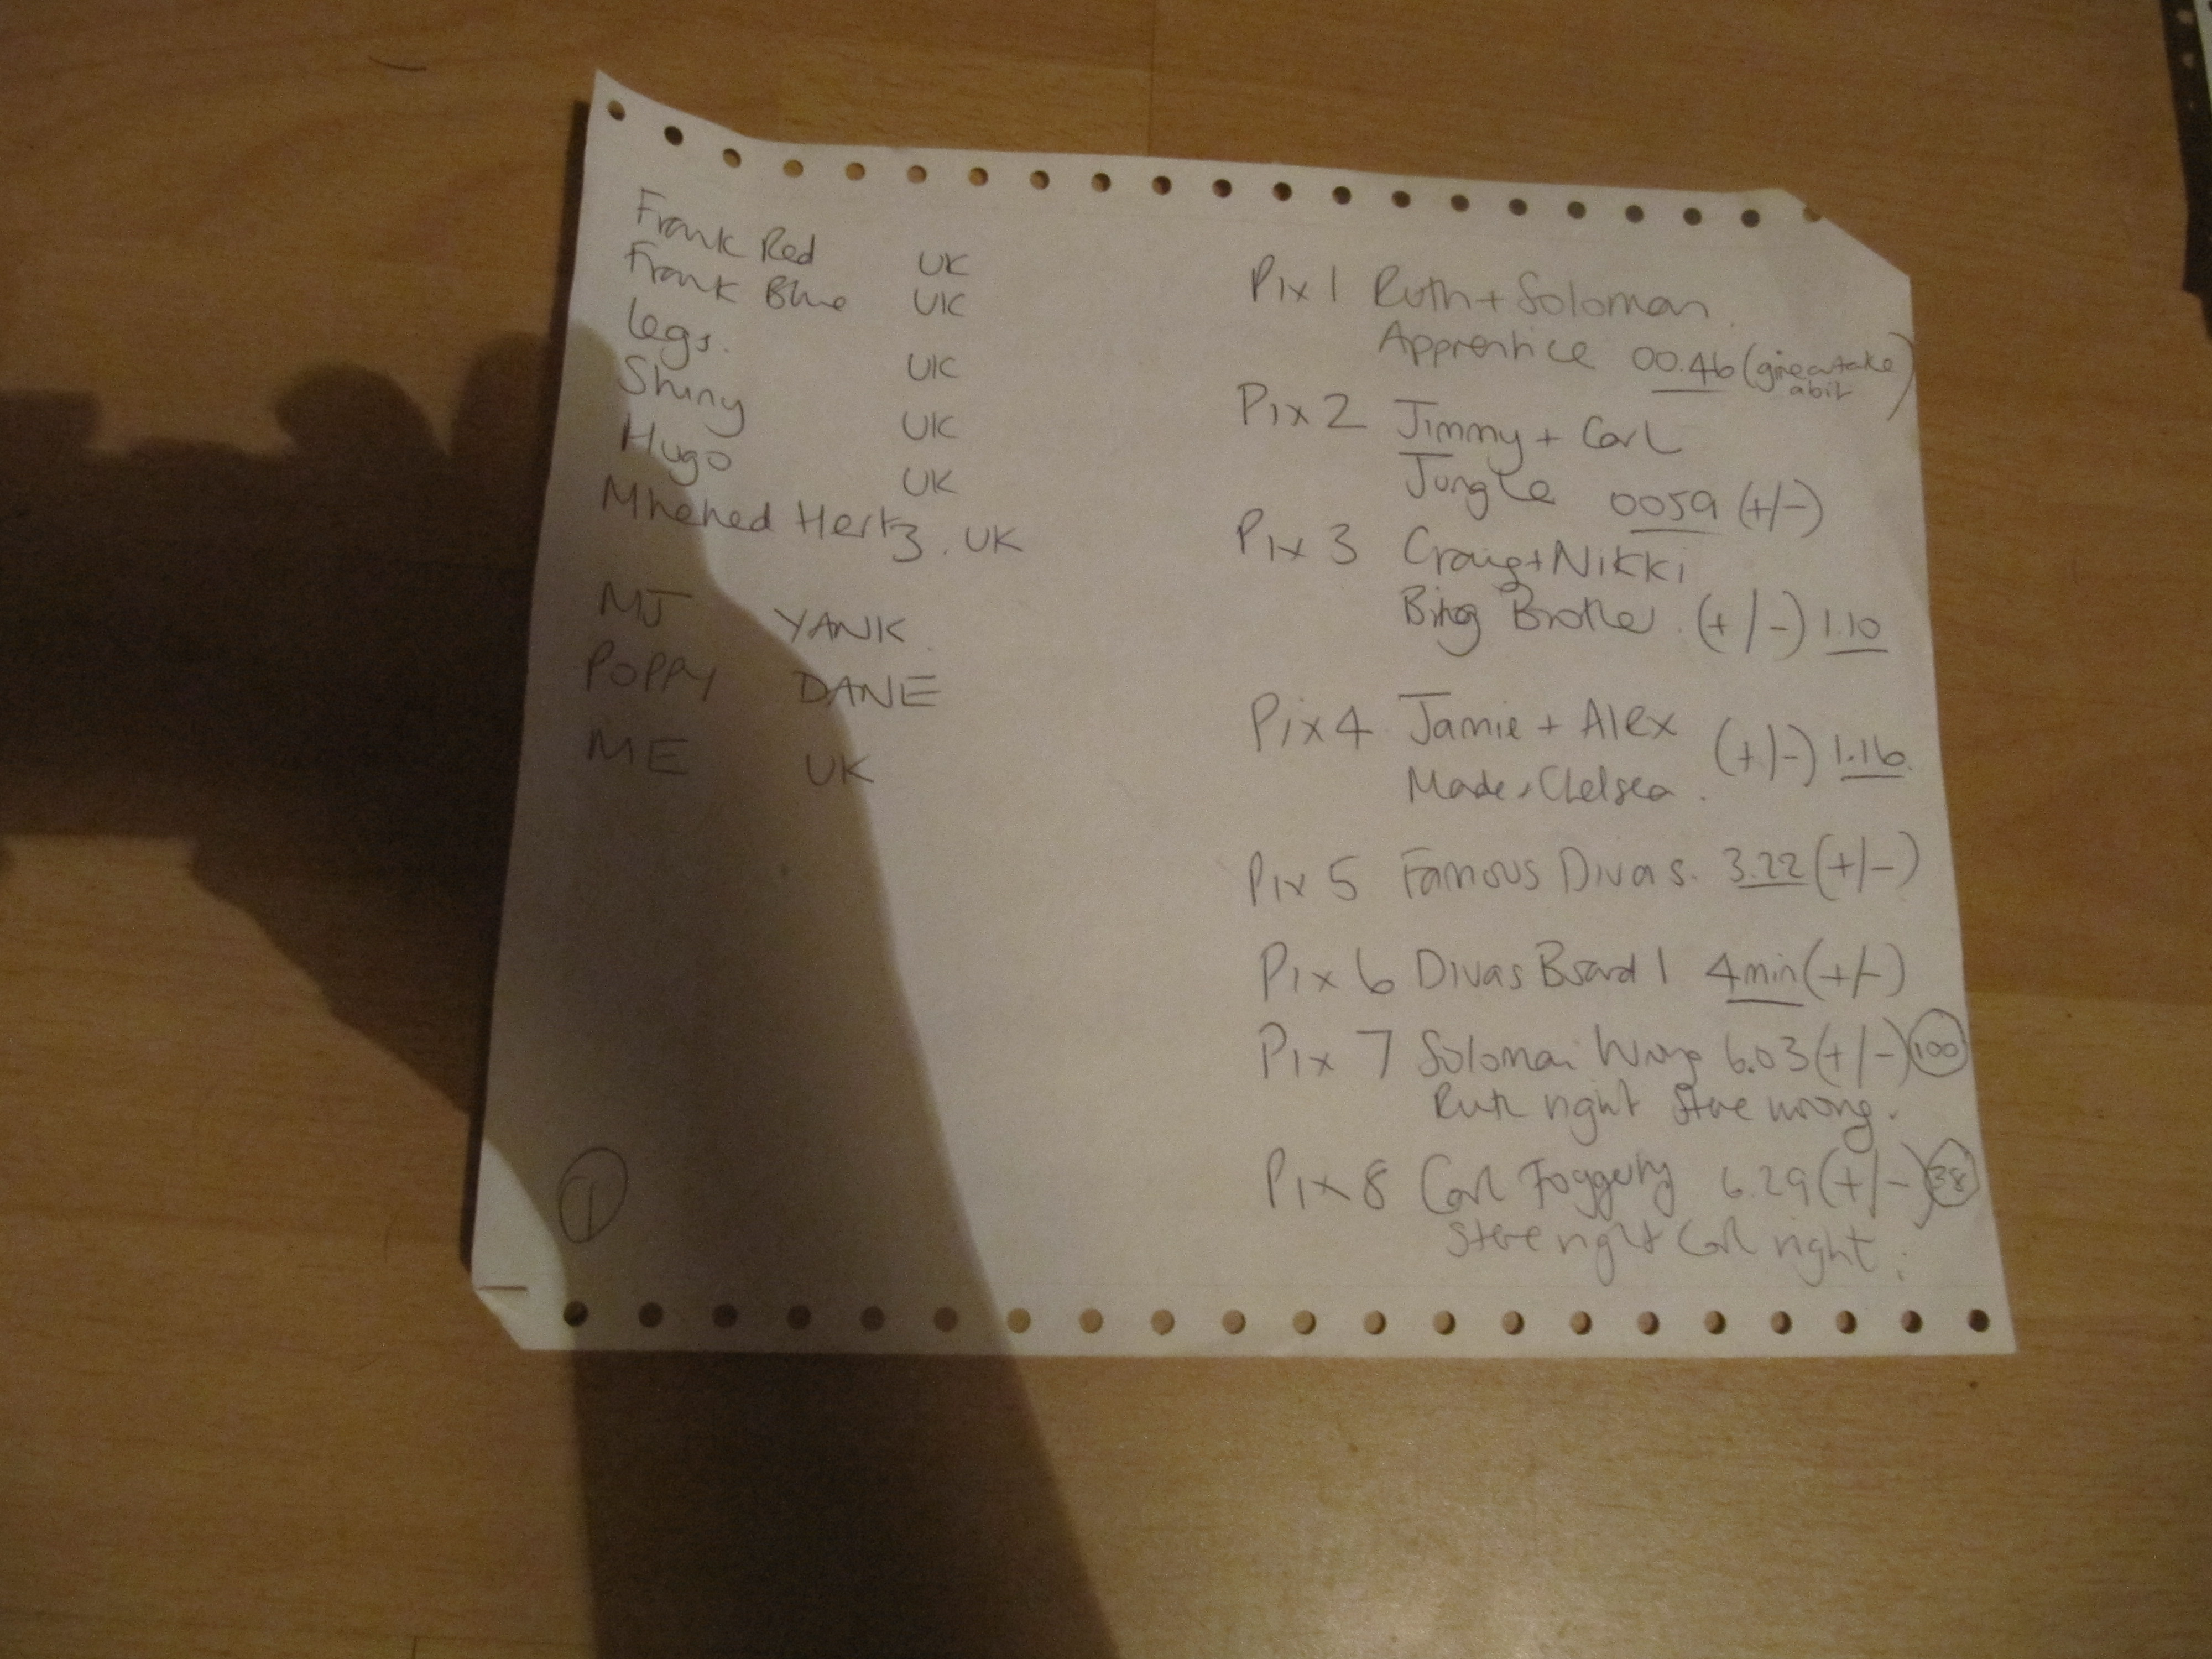 Frank Red UK
Frank Blue UK
Legs. UK
Shiny UK
Hugo UK
Mhehed Hertz. UK
MJ YANK
POPPY DANE
ME UK
1
Pix 1 Ruth + Soloman
Apprentice 00.46 (give or take
a bit)
Pix 2 Jimmy + Carl
Jungle 0059 (+/-)
Pix 3 Craig + Nikki
Bing Brother. (+/-) 1.10
Pix 4 Jamie + Alex
(+/-) 1.16.
Made, Chelsea.
Pix 5 Famous Divas. 3.22 (+/-)
Pix 6 Divas Board 1 4min (+/-)
Pix 7 Soloman Wrong 6.03 (+/-) 100
Ruth right Steve wrong.
Pix 8 Carl Foggerty 6.29 (+/-) 38
Steve right Carl right.